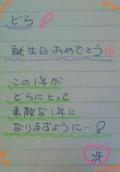 どら
誕生日おめでとう!!!
この1年が
どらにとって
素敵な1年に
なりますように―
冴